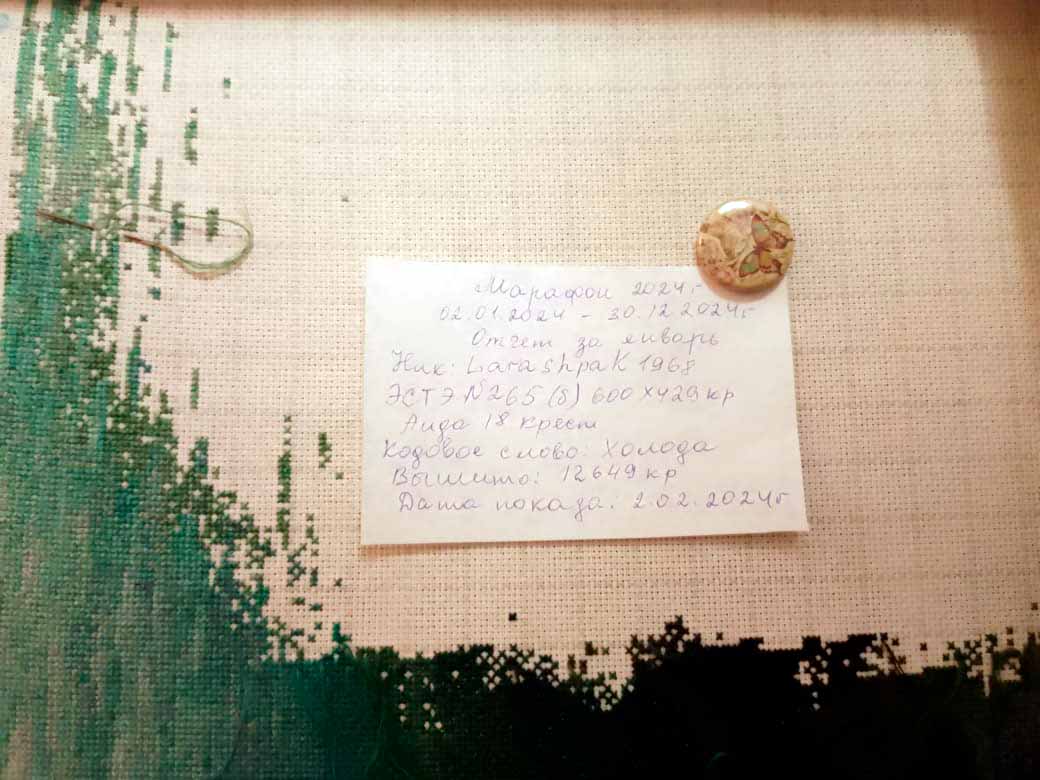 Марафон 2024г
02.01.2024 - 30.12.2024г
Отчет за январь
Ник: Larashpak1968
ЭСТЭ №265(б) 600х429кр
Аида 18 крест
Кодовое слово: Холода
Вышито: 12649 кр
Дата показа: 2.02.2024г